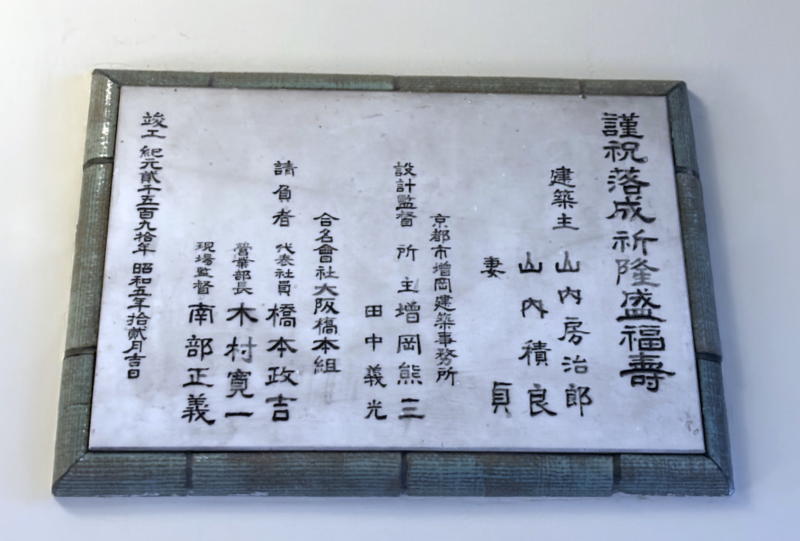 謹祝落成祈隆盛福壽
建築主 山内房治郎
山内積良
妻 貞
京都市增岡建築事務所
設計監督 所主 增岡熊三
田中義光
合名會社大阪橋本組
請負者 代表社員 橋本政吉
營業部長 木村寬一
現場監督 南部正義
竣工 紀元貳千五百九拾年 昭和五年拾貳月吉日